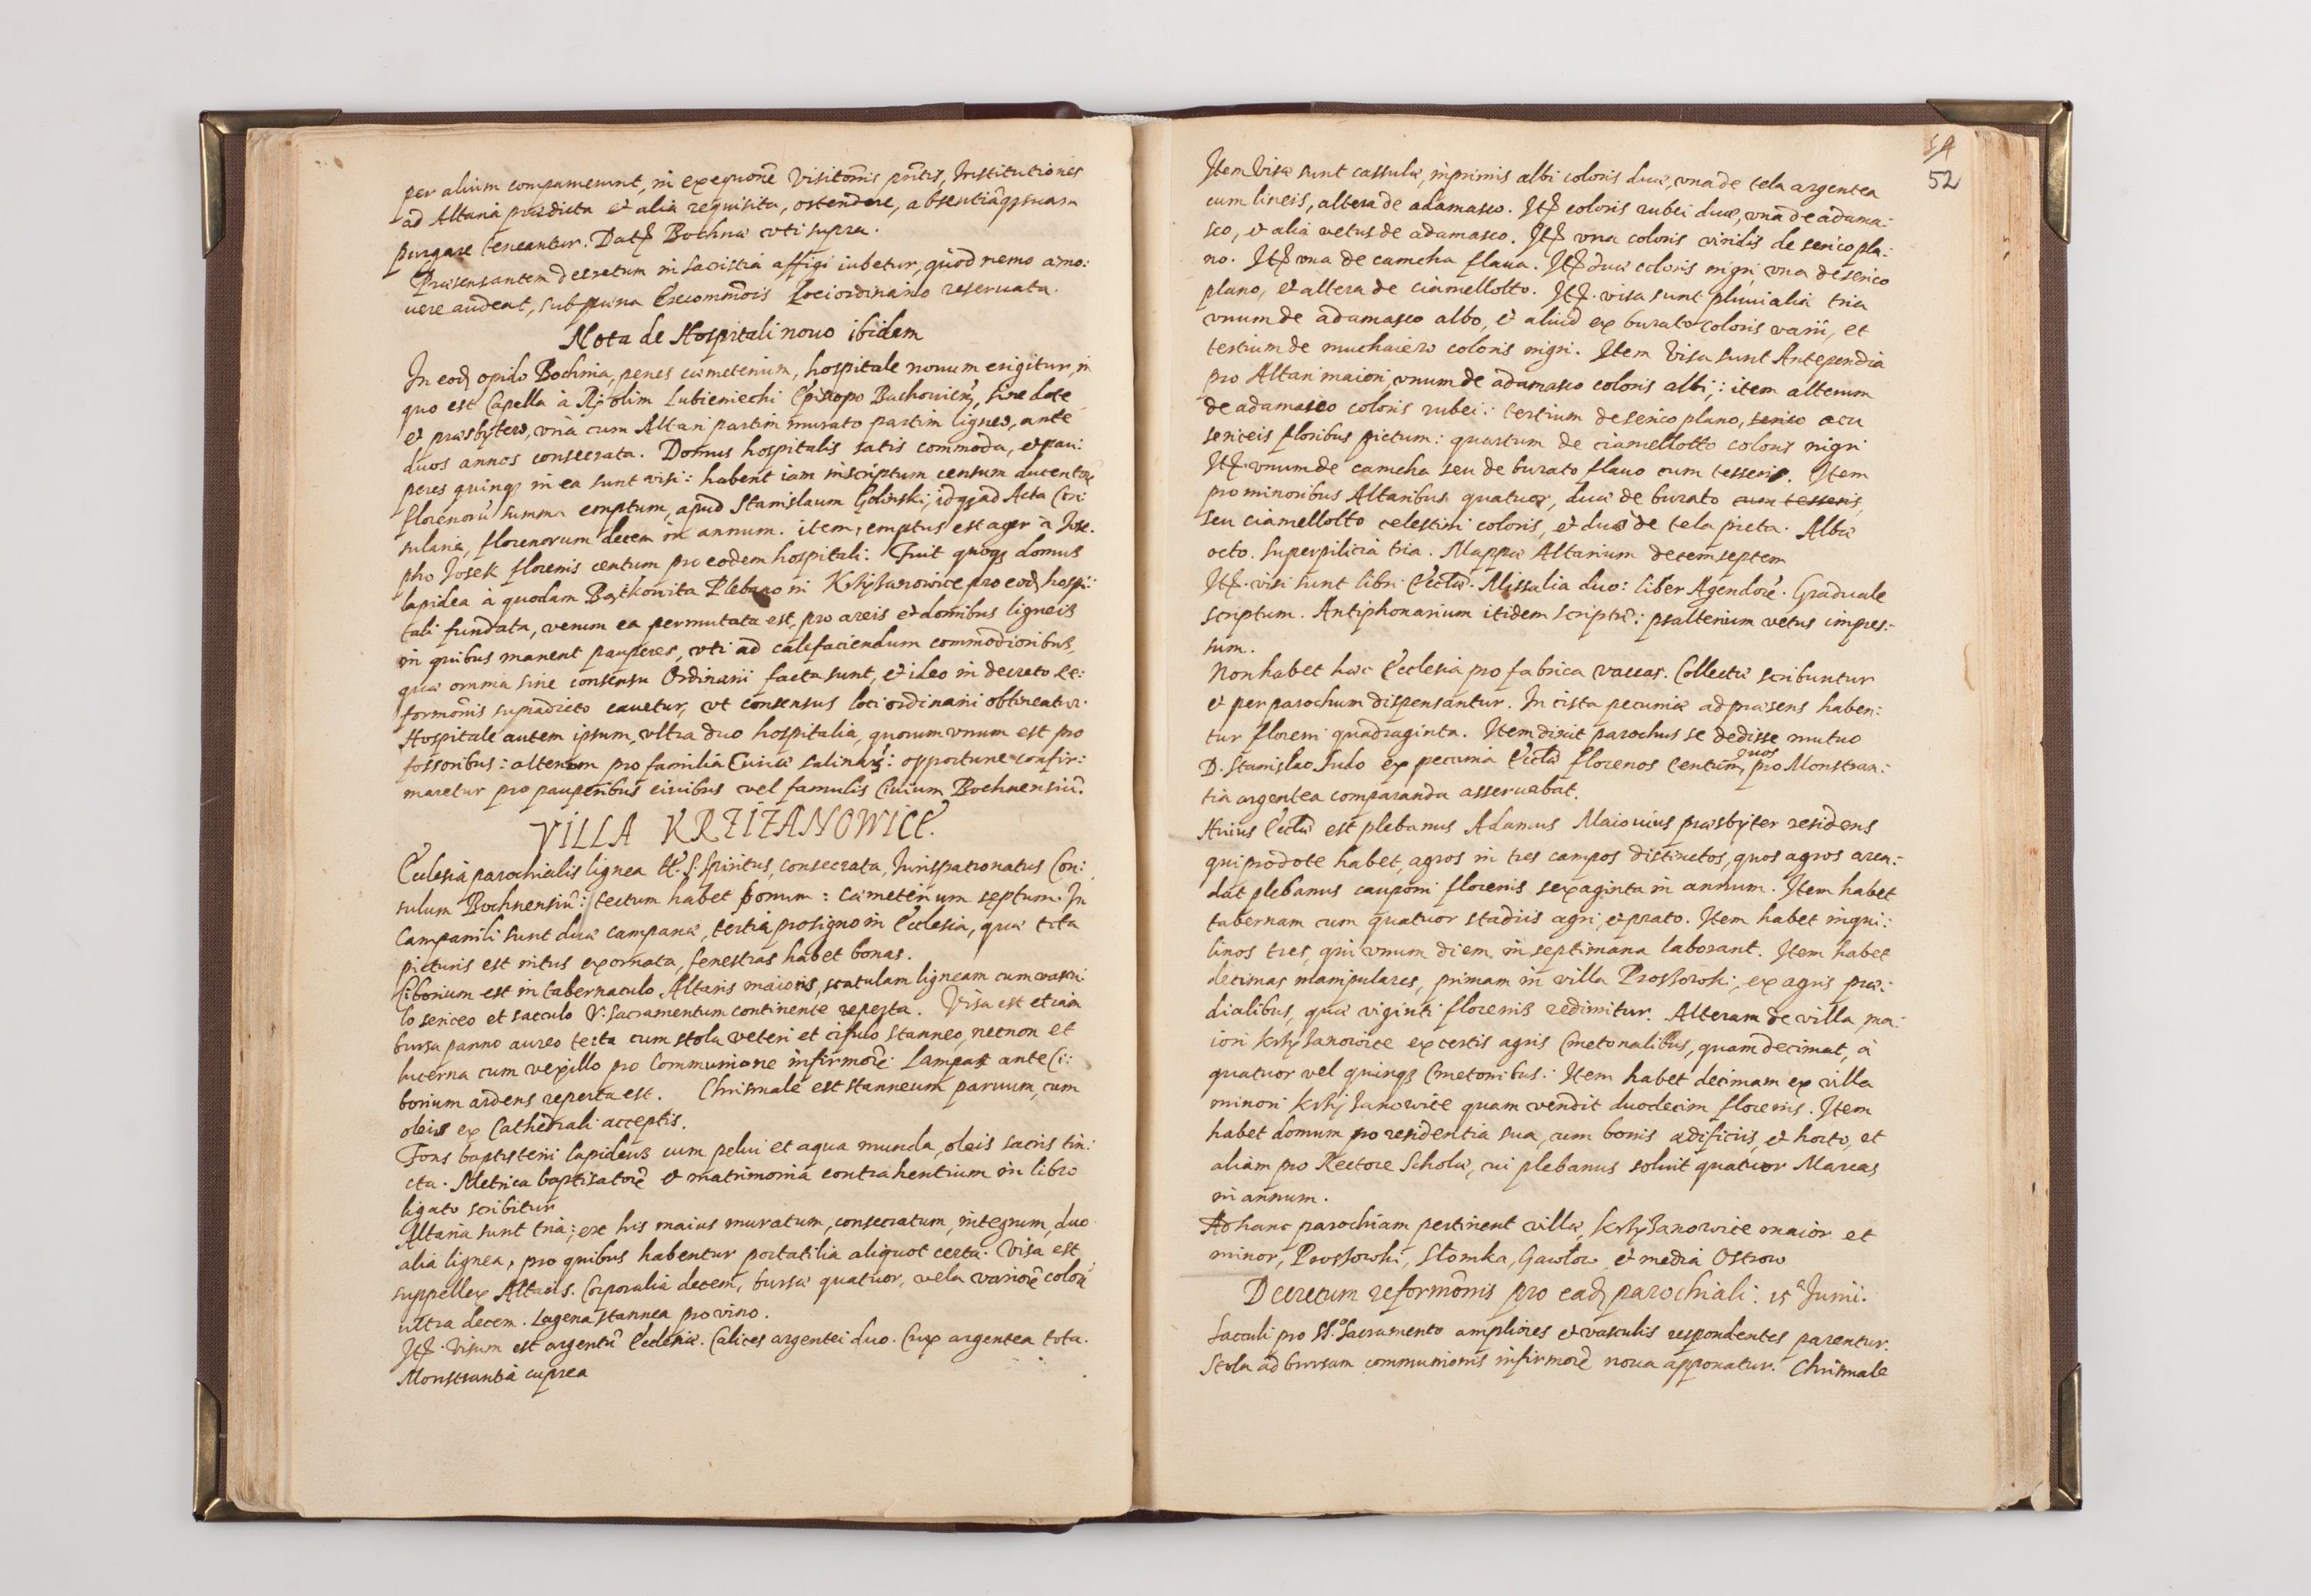 per alium compareant, in exequōne Visitōnis pn̄tis, Institutiones
ad Altaria prædicta et alia requisita, ostendere, absentiāq; suam
purgare teneantur. Dat. Bochnæ uti supra.
Præsens autem decretum in sacristia affigi iubetur, quod nemo amo:
uere audeat, sub pœna Excommōis loci ordinario reseruata.
Nota de Hospitali nouo ibidem
In eod opido Bochnia, penes cœmeterium, hospitale nouum erigitur, in
quo est Capella à R. olim Lubieniechi Episcopo, sine dote
et præsbytero, unà cum Altari partim murato partim ligneo, ante
duos annos consecrata. Domus hospitalis satis commoda, et pau:
peres quinq; in ea sunt uisi: habent iam inscriptum censum ducentor
florenorū summa emptum, apud Stanislaum Golinski, idq; ad Acta Con:
sularia, florenorum decem in annum. item, emptus est ager à Jose.
pho Josek florenis centum pro eodem hospitali. Fuit quoq; domus
lapidea à quodam Bątkowita Plebano in Krziżanowice pro eod hospi:
tali fundata, verum ea permutata est, pro areis et domibus ligneis
in quibus manent pauperes, uti ad calefaciendum commodioribus,
quæ omnia sine consensu Ordinarii facta sunt, et ideo in decreto re:
formōnis supradicto cauetur, ut consensus loci ordinarii obtineatur.
Hospitale autem ipsum, ultra duo hospitalia, quorum unum est pro
fossoribus: alterum pro familia Curiæ salinar: opportune confir:
maretur pro pauperibus ciuibus vel famulis Ciuium Bochnensiū.
VILLA KRZIZANOWICE.
Ecclesia parochialis lignea tt. S. Spiritus, consecrata, Iurispatronatus Con:
sulum Bochnensiū: tectum habet bonum: Cœmeterium septum. In
Campanili sunt duæ campanæ, tertia pro signo in Ecclesia, quæ tota
picturis est intus exornata, fenestras habet bonas.
Ciborium est in tabernaculo Altaris maioris, scatulam ligneam cum vascu
lo sericeo et sacculo V. Sacramentum continente reperta. Visa est etiam
bursa panno aureo tecta cum stola veteri et cifulo stanneo, necnon et
lucerna cum vexillo pro Communione infirmorē. Lampas ante Ci:
borium ardens reperta est. Chrismale est stanneum paruum, cum
oleis ex Cathedrali acceptis.
Fons baptisterii lapideus cum pelui et aqua munda, oleis sacris tin:
cta. Metrica baptisatorē et matrimonia contrahentium in libro
ligato scribitur
Altaria sunt tria; ex his maius muratum, consecratum, integrum, duo
alia lignea, pro quibus habentur portatilia aliquot certa. Visa est
suppellex Altaris. Corporalia decem, bursæ quatuor, vela variorē colorū
ultra decem. Lagena stannea pro vino.
It. Visum est argentū Ecclesiæ. Calices argentei duo. Crux argentea tota.
Monstrantia cuprea
54
52
Item Visæ sunt cassulæ, inprimis albi coloris duæ, una de tela argentea
cum lineis, altera de adamasco. It. coloris rubei duæ, una de adama:
sco, et alia vetus de adamasco. It. una coloris viridis de serico pla:
no. It. una de camcha flaua. It. duæ coloris nigri, una de serico
plano, et altera de ciamellotto. It. visa sunt pluuialia tria
unum de adamasco albo, et aliud ex burato coloris varii, et
tertium de muchaiero coloris nigri. Item Visa sunt Antependia
pro Altari maiori, unum de adamasco coloris albi; item alterum
de adamasco coloris rubei: tertium de serico plano, serico acu
sericeis floribus pictum: quartum de ciamellotto coloris nigri
It. unum de camcha seu de burato flauo cum tesseris. Item
pro minoribus Altaribus quatuor, duæ de burato cum tesseris,
seu ciamellotto celestini coloris, et duo de tela picta. Albæ
octo. Superpilicia tria. Mappæ Altarium decem septem
It. visi sunt libri Eccl̄æ. Missalia duo: liber Agendorē. Graduale
scriptum. Antiphonarium itidem scriptū: psalterium vetus impres:
sum.
Non habet hæc Ecclesia pro fabrica vaccas. Collectæ scribuntur
et per parochum dispensantur. In cista pecuniæ ad præsens haben:
tur floreni quadraginta. Item dixit parochus se dedisse mutuo
D. Stanislao Ludo ex pecunia Eccl̄æ florenos centum, quos pro Monstran:
tia argentea comparanda asseruabat.
Huius Eccl̄æ est plebanus Adamus Maiouius præsbyter residens
qui pro dote habet, agros in tres campos distinctos, quos agros aren:
dat plebanus cauponi florenis sexaginta in annum. Item habet
tabernam cum quatuor stadiis agri, et prato. Item habet inqui:
linos tres, qui unum diem in septimana laborant. Item habet
decimas manipulares, primam in villa Prossowki, ex agris præ:
dialibus, quæ viginti florenis redimitur. Alteram de villa ma:
iori Krziżanowice ex certis agris Cmetonalibus, quam decimat, à
quatuor vel quinq; Cmetonibus. Item habet decimam ex villa
minori Krziżanowice quam vendit duodecim florenis. Item
habet domum pro residentia sua, cum bonis ædificiis, et horto, et
aliam pro Rectore Scholæ, cui plebanus soluit quatuor Marcas
in annum.
Ad hanc parochiam pertinent villæ, Krziżanowice maior et
minor, Prossowki, Słomka, Gawłow, et media Ostrow
Decretum reformōnis pro ead parochiali. 15ª Junii.
Sacculi pro SS.º Sacramento ampliores et vasculis respondentes parentur.
Stola ad bursam communionis infirmorē noua apponatur. Chrismale